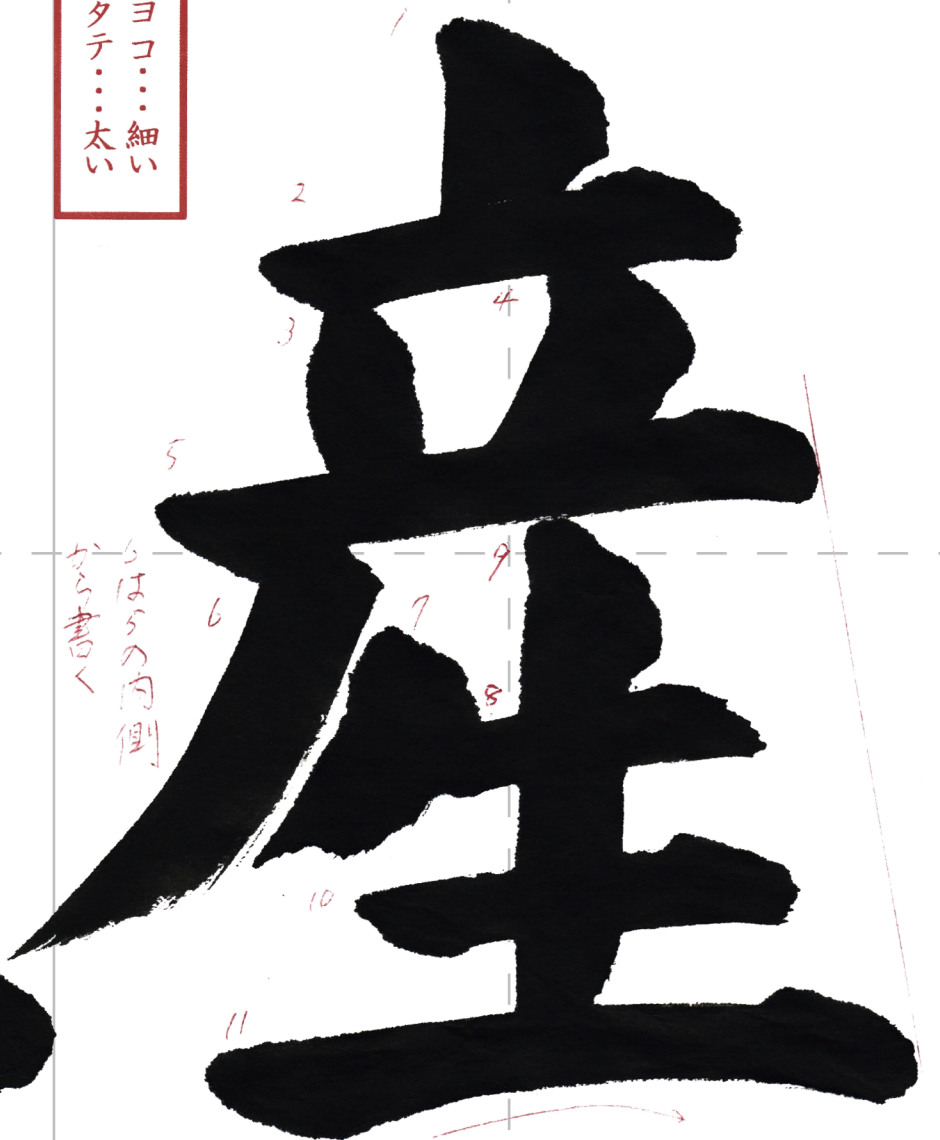 ヨコ・・・細い
タテ・・・太い
産
1
2
3
4
5
6
7
8
9
10
11
6は5の内側
から書く